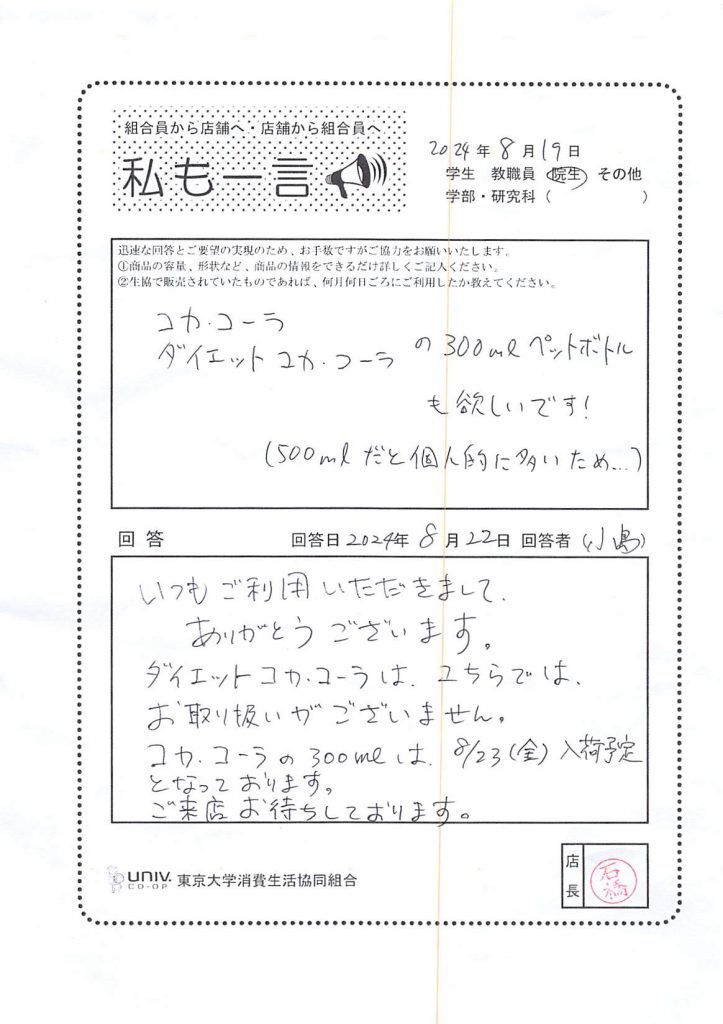 組合員から店舗へ・店舗から組合員へ
私も一言
2024年8月19日
学生 教職員 院生 その他
学部・研究科( )
迅速な回答とご要望の実現のため、お手数ですがご協力をお願いいたします。
①商品の容量、形状など、商品の情報をできるだけ詳しくご記入ください。
②生協で販売されていたものであれば、何月何日ごろにご利用したか教えてください。
コカ・コーラ
ダイエットコカ・コーラ の300mlペットボトル
も欲しいです!
(500mlだと個人的に多いため…)
回答 回答日2024年8月22日 回答者(小島)
いつもご利用いただきまして、
ありがとうございます。
ダイエットコカ・コーラは、こちらでは、
お取り扱いがございません。
コカ・コーラの300mlは、8/23(金)入荷予定
となっております。
ご来店お待ちしております。
UNIV. CO-OP 東京大学消費生活協同組合
店長 石橋